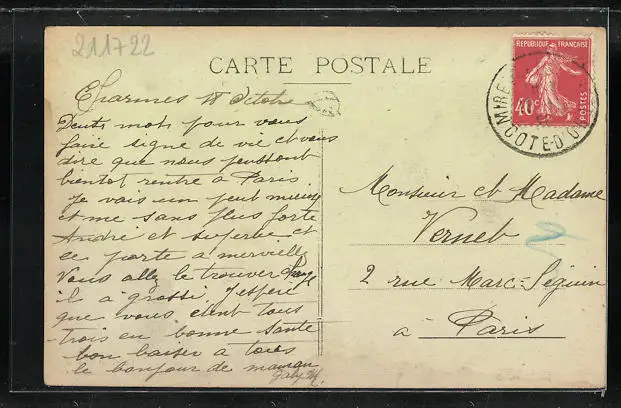 211722
CARTE POSTALE
REPUBLIQUE FRANÇAISE
40c
POSTES
MIRE
COTE-D'OR
Charmes 18 Octobre
Deuts mots pour vous
faire signe de vie et vous
dire que nous penssont
bientot rentre a Paris.
Je vais un peut mieux
et me sans plus forte
André et superbe et
ce porte a merveille
Vous allez le trouver changé
il a grossi. J'espere
que vous etent tous
trois en bonne sante
bon baiser a tous
le bonjour de maman
Monsieur et Madame
Vernet
2 rue Marc-Séguin
à Paris